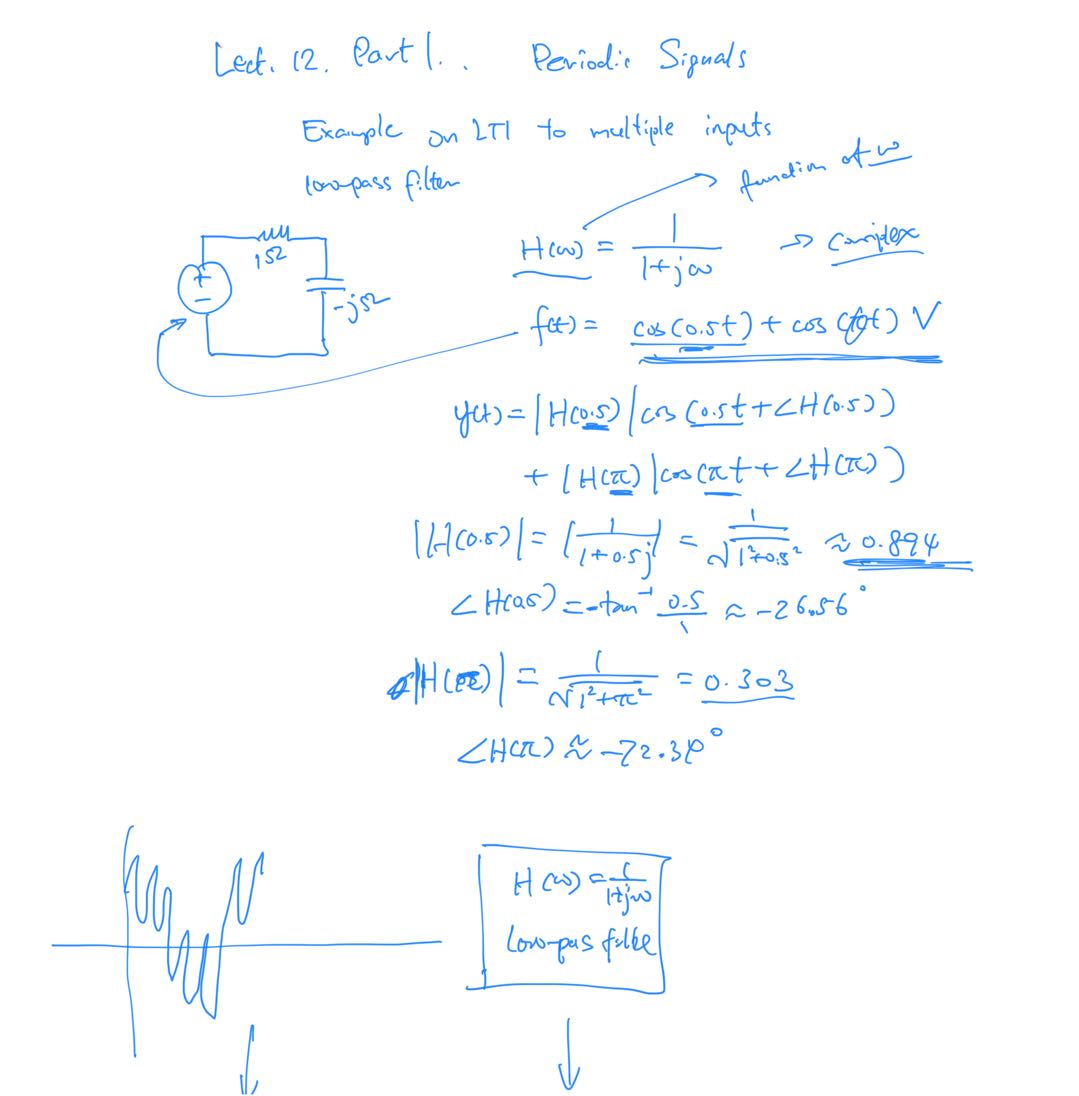 Lect. 12. Part 1. . Periodic Signals
Example on LTI to multiple inputs
low-pass filter
function of ω
1Ω
+
−
-jΩ
H(ω) = 1/(1+jω) → Complex
f(t) = cos(0.5t) + cos(πt) V
y(t) = |H(0.5)| cos(0.5t + ∠H(0.5))
+ |H(π)| cos(πt + ∠H(π))
|H(0.5)| = |1/(1+0.5j)| = 1/√(1²+0.5²) ≈ 0.894
∠H(0.5) = -tan⁻¹ 0.5/1 ≈ -26.56°
|H(π)| = 1/√(1²+π²) = 0.303
∠H(π) ≈ -72.34°
H(ω) = 1/(1+jω)
Low-pas filte